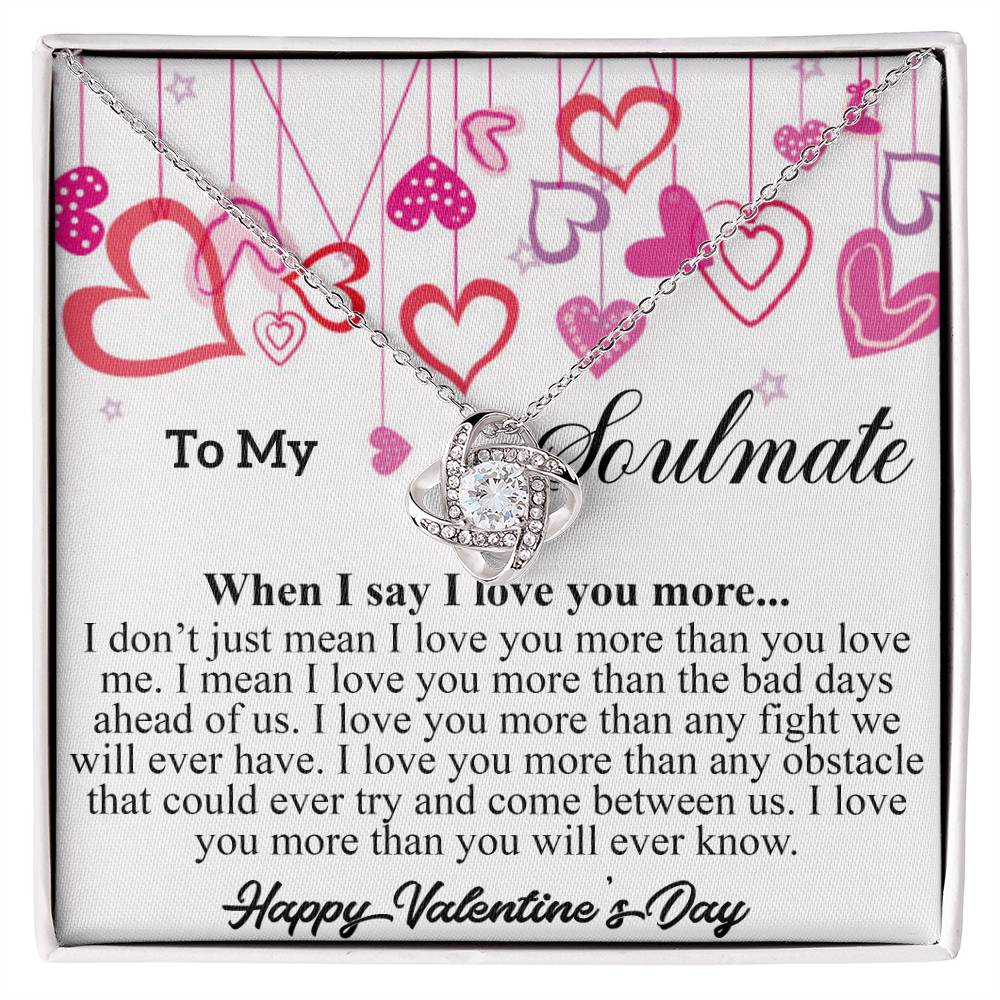 To My Soulmate
When I say I love you more...
I don’t just mean I love you more than you love
me. I mean I love you more than the bad days
ahead of us. I love you more than any fight we
will ever have. I love you more than any obstacle
that could ever try and come between us. I love
you more than you will ever know.
Happy Valentine's Day